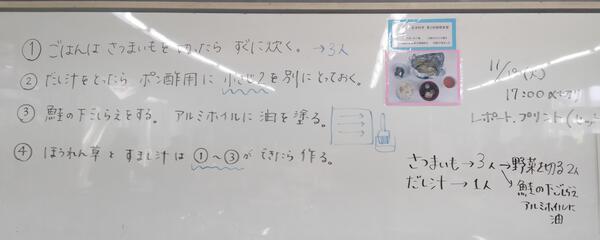 ① ごはんは さつまいもを 切ったら すぐに炊く。→3人
② だし汁をとったら ポン酢用に 小さじ2を別にとっておく。
③ 鮭の下ごしらえをする。 アルミホイルに 油を塗る。
④ ほうれん草と すまし汁は ①〜③ができたら 作る。
(火)
17:00〆切り
レポート.プリント
さつまいも→3人→野菜を切る2人
だし汁→1人 →鮭の下ごしらえ
アルミホイルに
油